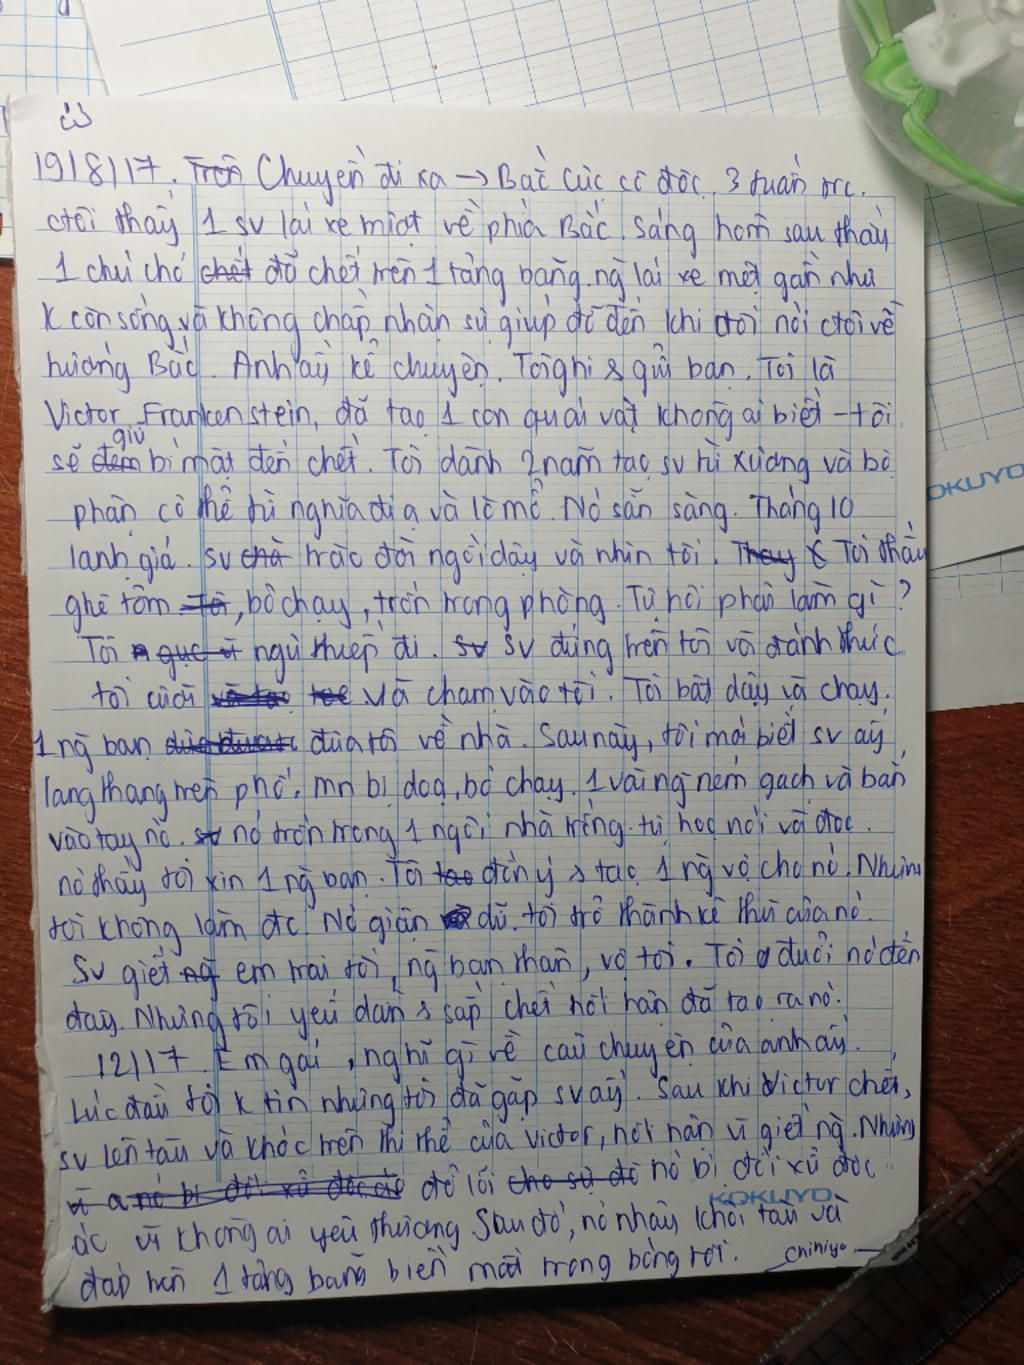 19/8/17. Trốn Chuyến đi xa → Bắc Cực cô đơc. 3 tuần trc.
ctôi thấy 1 sv lái xe một về phía Bắc. Sáng hôm sau thấy
1 chú chó chết đã chết trên 1 tảng băng. ng lái xe mệt gần như
k còn sống và không chấp nhận sự giúp đỡ đến khi ctôi nói ctôi về
hướng Bắc. Anh ấy kể chuyện. Tôi ghi & gửi bạn. Tôi là
Victor Frankenstein, đã tạo 1 con quái vật không ai biết – tôi
giữ
sẽ đem bí mật đến chết. Tôi dành 2 năm tạo sv từ xương và bộ
phận cơ thể từ nghĩa địa và lò mổ. Nó sẵn sàng. Tháng 10
lạnh giá. sv chà trào đời ngồi dậy và nhìn tôi. Thay Tôi thấy
ghê tởm Tô, bỏ chạy, trốn trong phòng. Tự hỏi phải làm gì?
Tôi ngục ngủ thiếp đi. sv sv đứng trên tôi và đánh thức
tôi cười và chạm vào tôi. Tôi bật dậy và chạy.
1 ng bạn đưa tôi về nhà. Sau này, tôi mới biết sv ấy
lang thang trên phố. mn bị doạ, bỏ chạy. 1 vài ng ném gạch và bắn
vào tay nó. sv nó trốn trong 1 ngôi nhà trống. tự học nói và đọc.
nó thấy tôi xin 1 ng bạn. Tôi tạo đồng ý & tạo 1 ng vợ cho nó. Nhưng
tôi không làm đc. Nó giận dữ. tôi trở thành kẻ thù của nó.
Sv giết ng em trai tôi, ng bạn thân, vợ tôi. Tôi đuổi nó đến
đây. Nhưng tôi yếu dần & sắp chết hối hận đã tạo ra nó.
12/17. Em gái, nghĩ gì về câu chuyện của anh ấy.
Lúc đầu tôi k tin nhưng tôi đã gặp sv ấy. Sau khi Victor chết,
sv lên tàu và khóc trên thi thể của Victor, hối hận vì giết ng. Nhưng
nó bị đối xử độc đổ lỗi cho sự đó nó bị đối xử độc
KOKUYO
ác vì không ai yêu thương. Sau đó, nó nhảy khỏi tàu và
đáp trên 1 tảng băng biến mất trong bóng tối. Chiniyo
KOKUYO